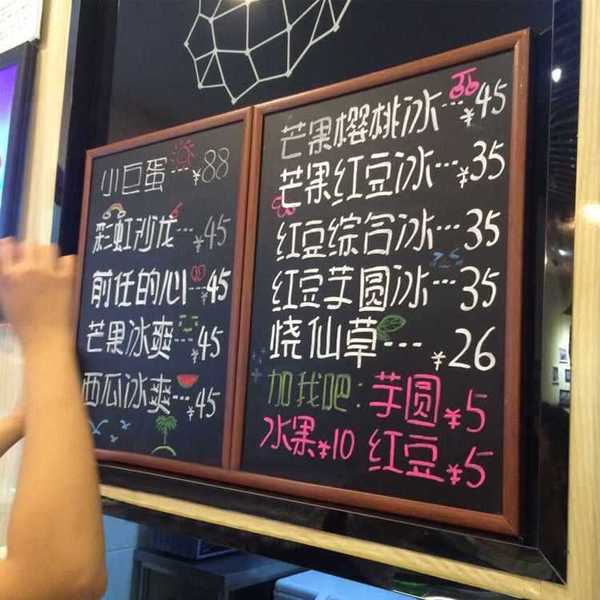 小巨蛋…¥88
彩虹沙龙…¥45
前任的心…¥45
芒果冰爽…¥45
西瓜冰爽…¥45
芒果樱桃冰…¥45
芒果红豆冰…¥35
红豆综合冰…35
红豆芋圆冰…35
烧仙草…¥26
加我吧:芋圆¥5
水果¥10 红豆¥5